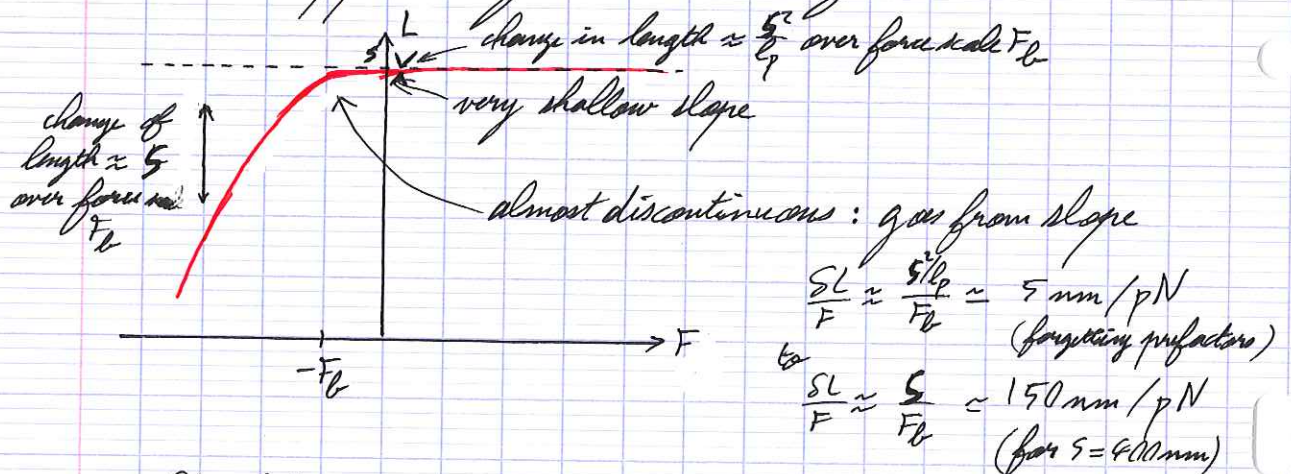 L
change in length ≈ ξ²/ℓp over force scale F_b
ξ
very shallow slope
change of
length ≈ ξ
over force
F_b
almost discontinuous : goes from slope
δL/F ≈ (ξ²/ℓp)/F_b ≈ 5 nm/pN
(forgetting prefactors)
to
δL/F ≈ ξ/F_b ≈ 150 nm/pN
(for ξ = 400 nm)
F
-F_b